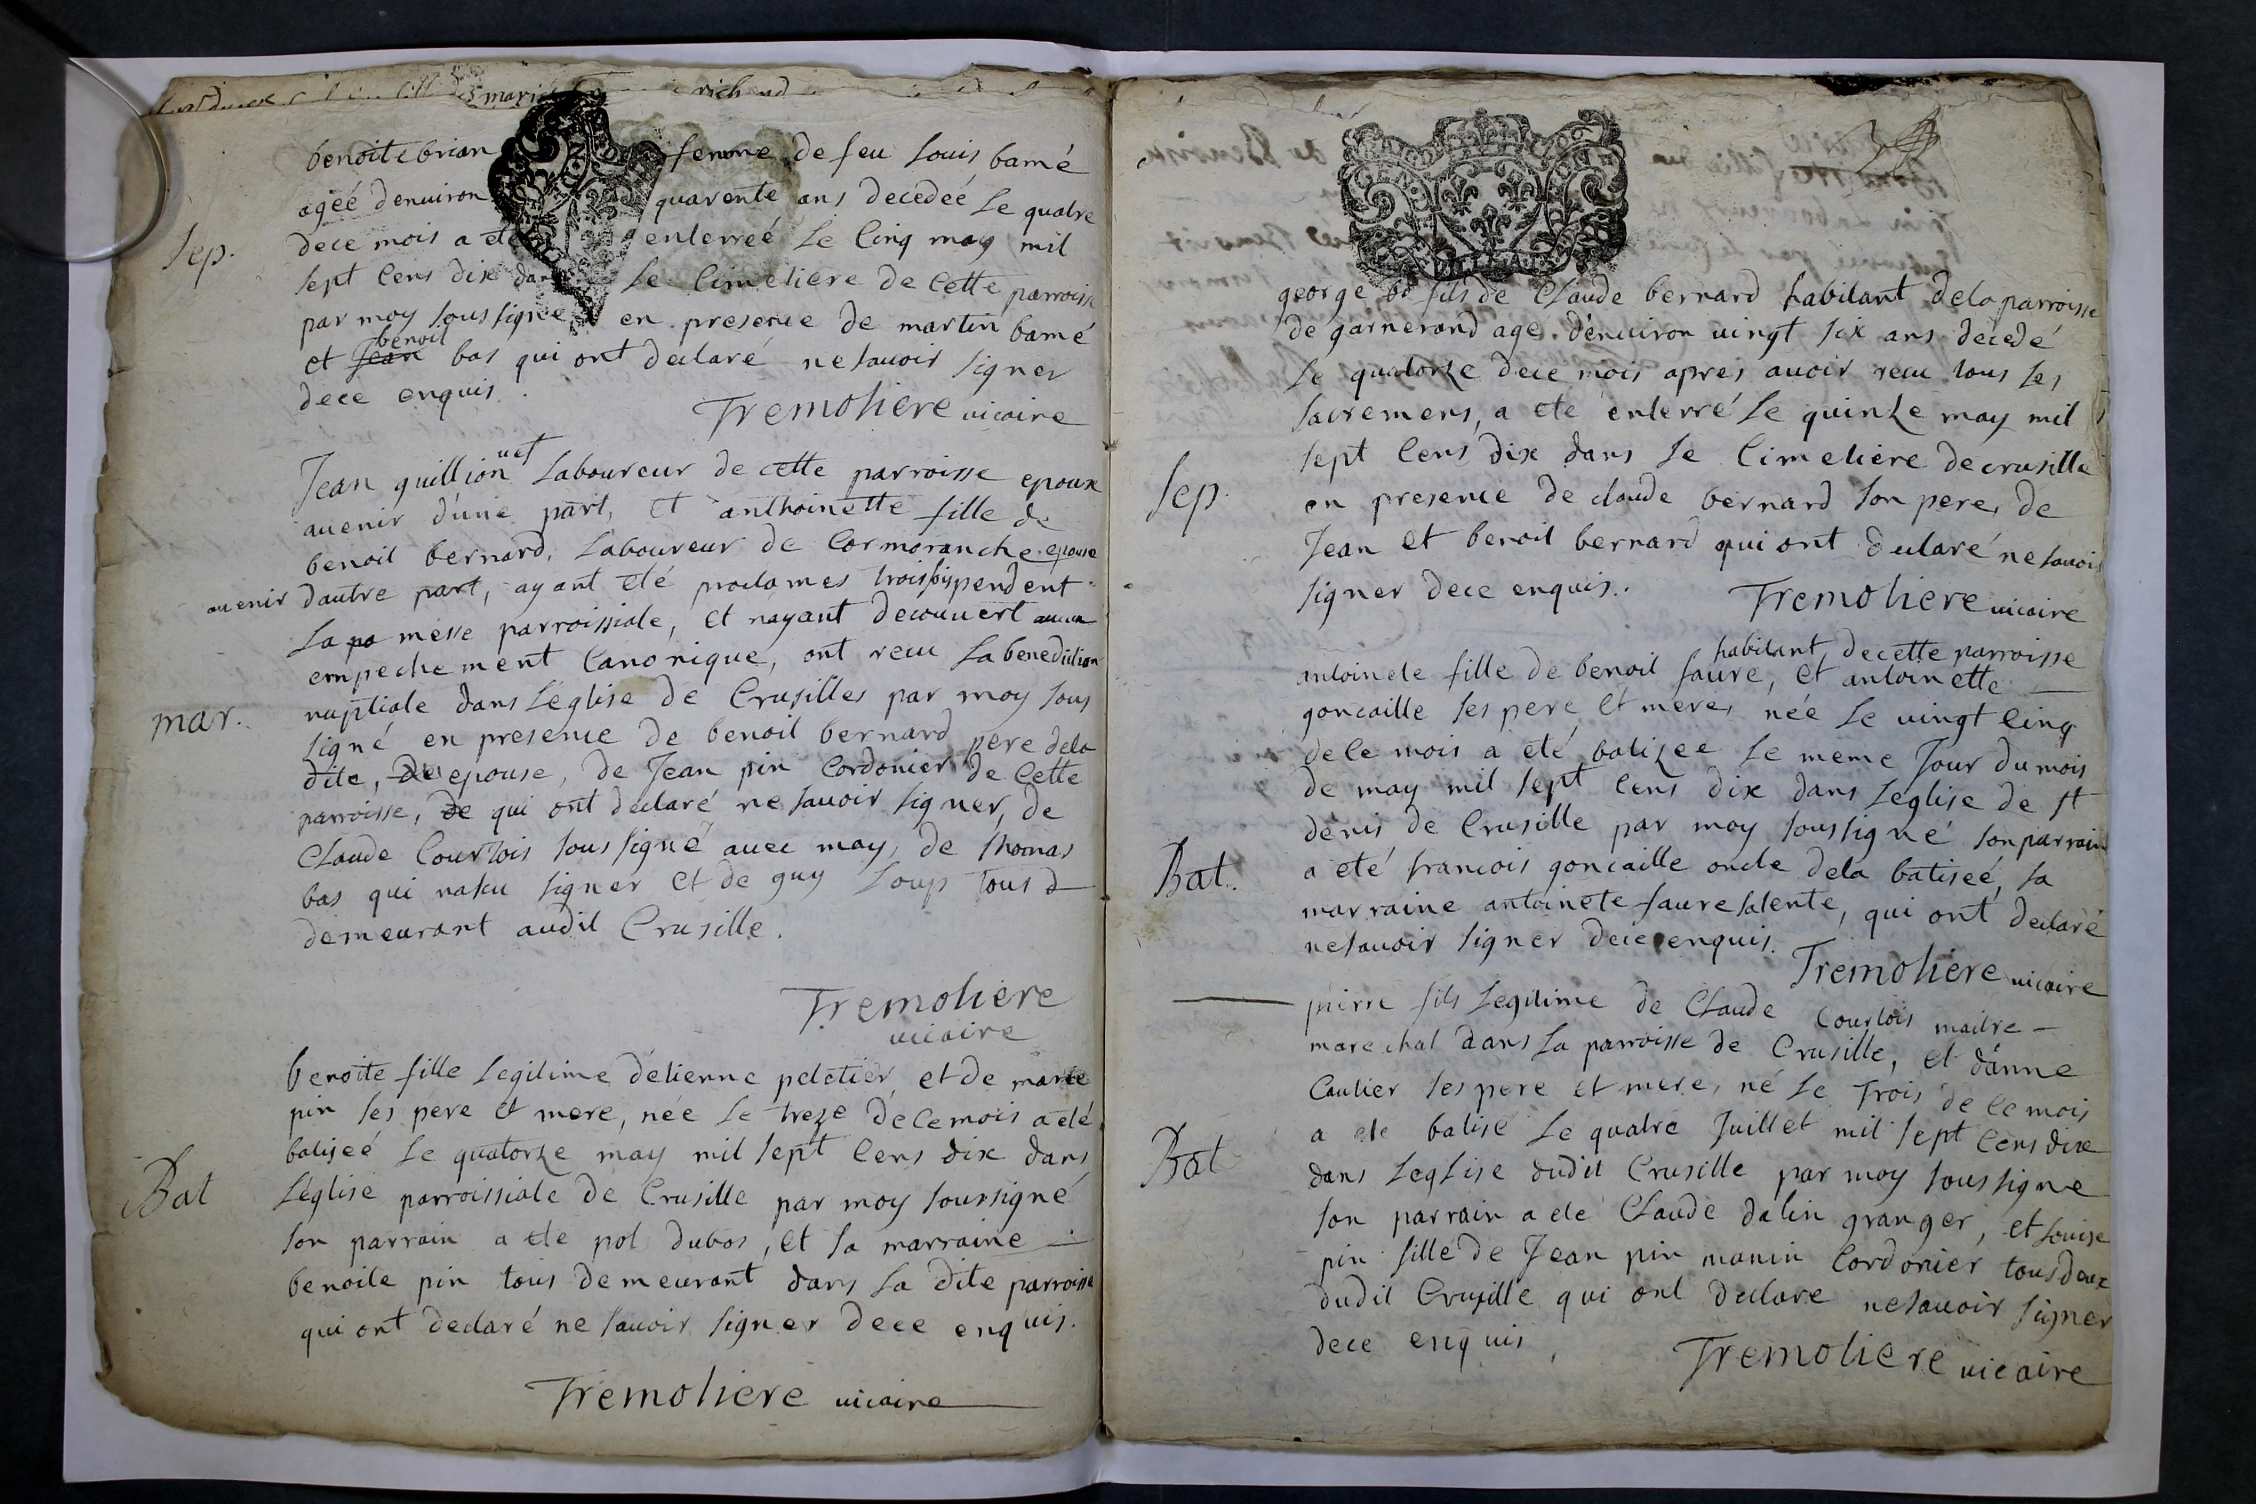 marié richard
benoite brian femme de feu Louis bamé
agéé denuiron quarente ans decedeé Le quatre
Sep.
dece mois a eté enterreé Le Cinq may mil
sept Cens dix dans Le Cimetiere de Cette parroisse
par moy sous signé en presence de martin bamé
benoit
et Jean bas qui ont declaré ne sauoir signer
dece enquis.
Tremoliere uicaire
Jean guillionuet Laboureur de cette parroisse epoux
auenir d'une part, et anthoinette fille de
benoit bernard, Laboureur de Cormoranche epouse
auenir dautre part, ayant eté proclames trois fois pendent
La pa messe parroissiale, et nayant decouuert aucun
empechement Canonique, ont recu La benediction
mar.
nuptiale dans L'eglise de Crusilles par moy sous
signé en presence de benoit bernard pere dela
dite, de epouse, de Jean pin Cordonier de Cette
parroisse, de qui ont declaré ne sauoir signer, de
Claude Courtois sous signé auec moy, de thomas
bas qui nasceu signer et de guy Loup tous d
demeurant audit Crusille.
Tremoliere
uicaire
benoite fille Legitime d'etienne peletier et de marie
pin ses pere et mere, née Le treze de Ce mois a eté
batiseé Le quatorze may mil sept Cens dix dans
Bat
L'eglise parroissiale de Crusille par moy soussigné
son parrain a ete pol dubos, et sa marraine
benoite pin tous demeurant dans La dite parroisse
qui ont declaré ne sauoir signer dece enquis.
Tremoliere uicaire
GEN DE
george fils de Claude bernard habitant dela parroisse
de garnerand age d'enuiron uingt six ans decedé
Le quatorze dece mois apres auoir recu tous Les
sacremens, a eté enterré Le quinze may mil
sept Cens dix dans Le Cimetiere de crusille
Sep.
en presence de claude bernard son pere, de
Jean et benoit bernard qui ont declaré ne sauoir
signer dece enquis.
Tremoliere uicaire
habitant decette parroisse
antoinete fille de benoit faure, et antoinette
goncaille ses pere et mere, née Le uingt Cinq
de Ce mois a eté batizee Le meme Jour du mois
de may mil sept Cens dix dans Leglise de st
denis de Crusille par moy soussigné son parrain
Bat.
a eté francois goncaille oncle dela batiseé, sa
marraine antoinete faure satente, qui ont declaré
nesauoir signer dece enquis.
Tremoliere uicaire
pierre fils Legitime de Claude Courtois maitre
marechal dans La parroisse de Crusille, et d'anne
Caulier ses pere et mere, né Le trois de Ce mois
Bat
a ete batisé Le quatre Juillet mil sept Cens dix
dans Leglise dudit Crusille par moy sous signé
son parrain a eté Claude dalin granger, et Louise
pin fille de Jean pin manin Cordonier tous deux
dudit Crusille qui ont declare nesauoir signer
dece enquis,
Tremoliere uicaire